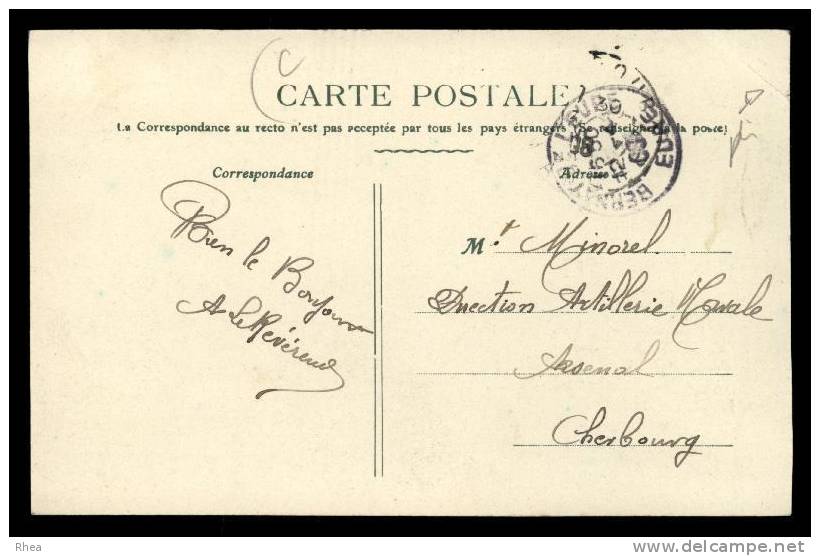 CARTE POSTALE
La Correspondance au recto n'est pas acceptée par tous les pays étrangers (Se renseigner à la poste)
Correspondance
Adresse
Bien le
Bonjour
A LeRévérend
M. r Minorel
Direction Artillerie Navale
Arsenal
Cherbourg
BERNAY
EURE
Rhea
www.delcampe.net